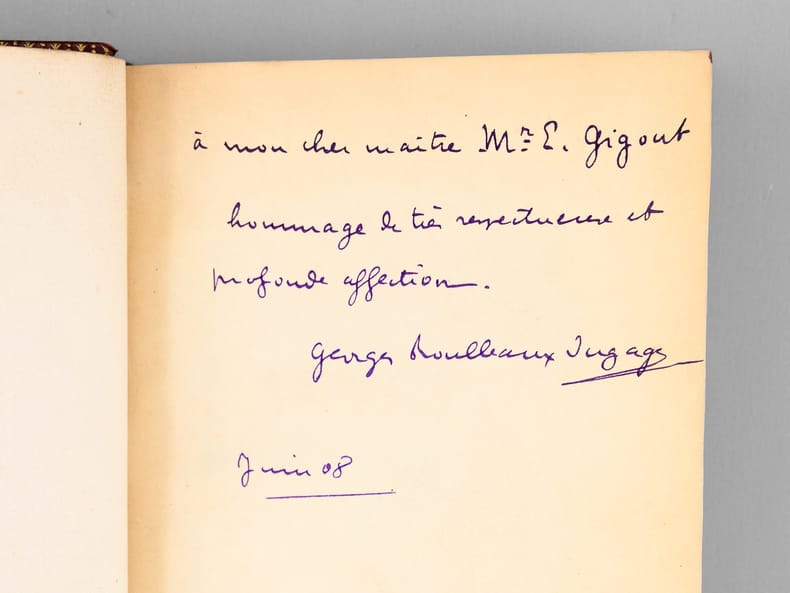 à mon cher maitre Mr. E. Gigout
hommage de très respectueuse et
profonde affection.
Georges Roulleaux Dugage
Juin 08